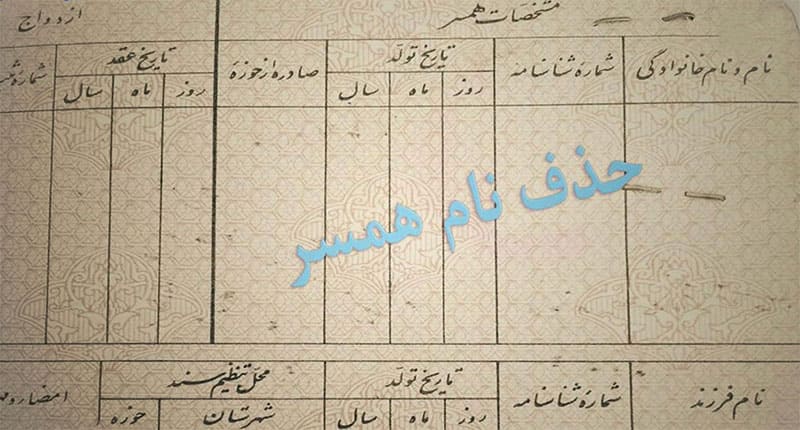 مشخصات همسر ازدواج
نام و نام خانوادگی شماره شناسنامه تاریخ تولد صادره از حوزه تاریخ عقد شماره
روز ماه سال روز ماه سال
حذف نام همسر
نام فرزند شماره شناسنامه تاریخ تولد محل تنظیم سند
روز ماه سال شهرستان حوزه